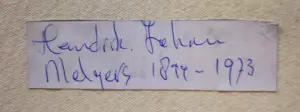 Hendrik. Johan
Melgers 1899 - 1973